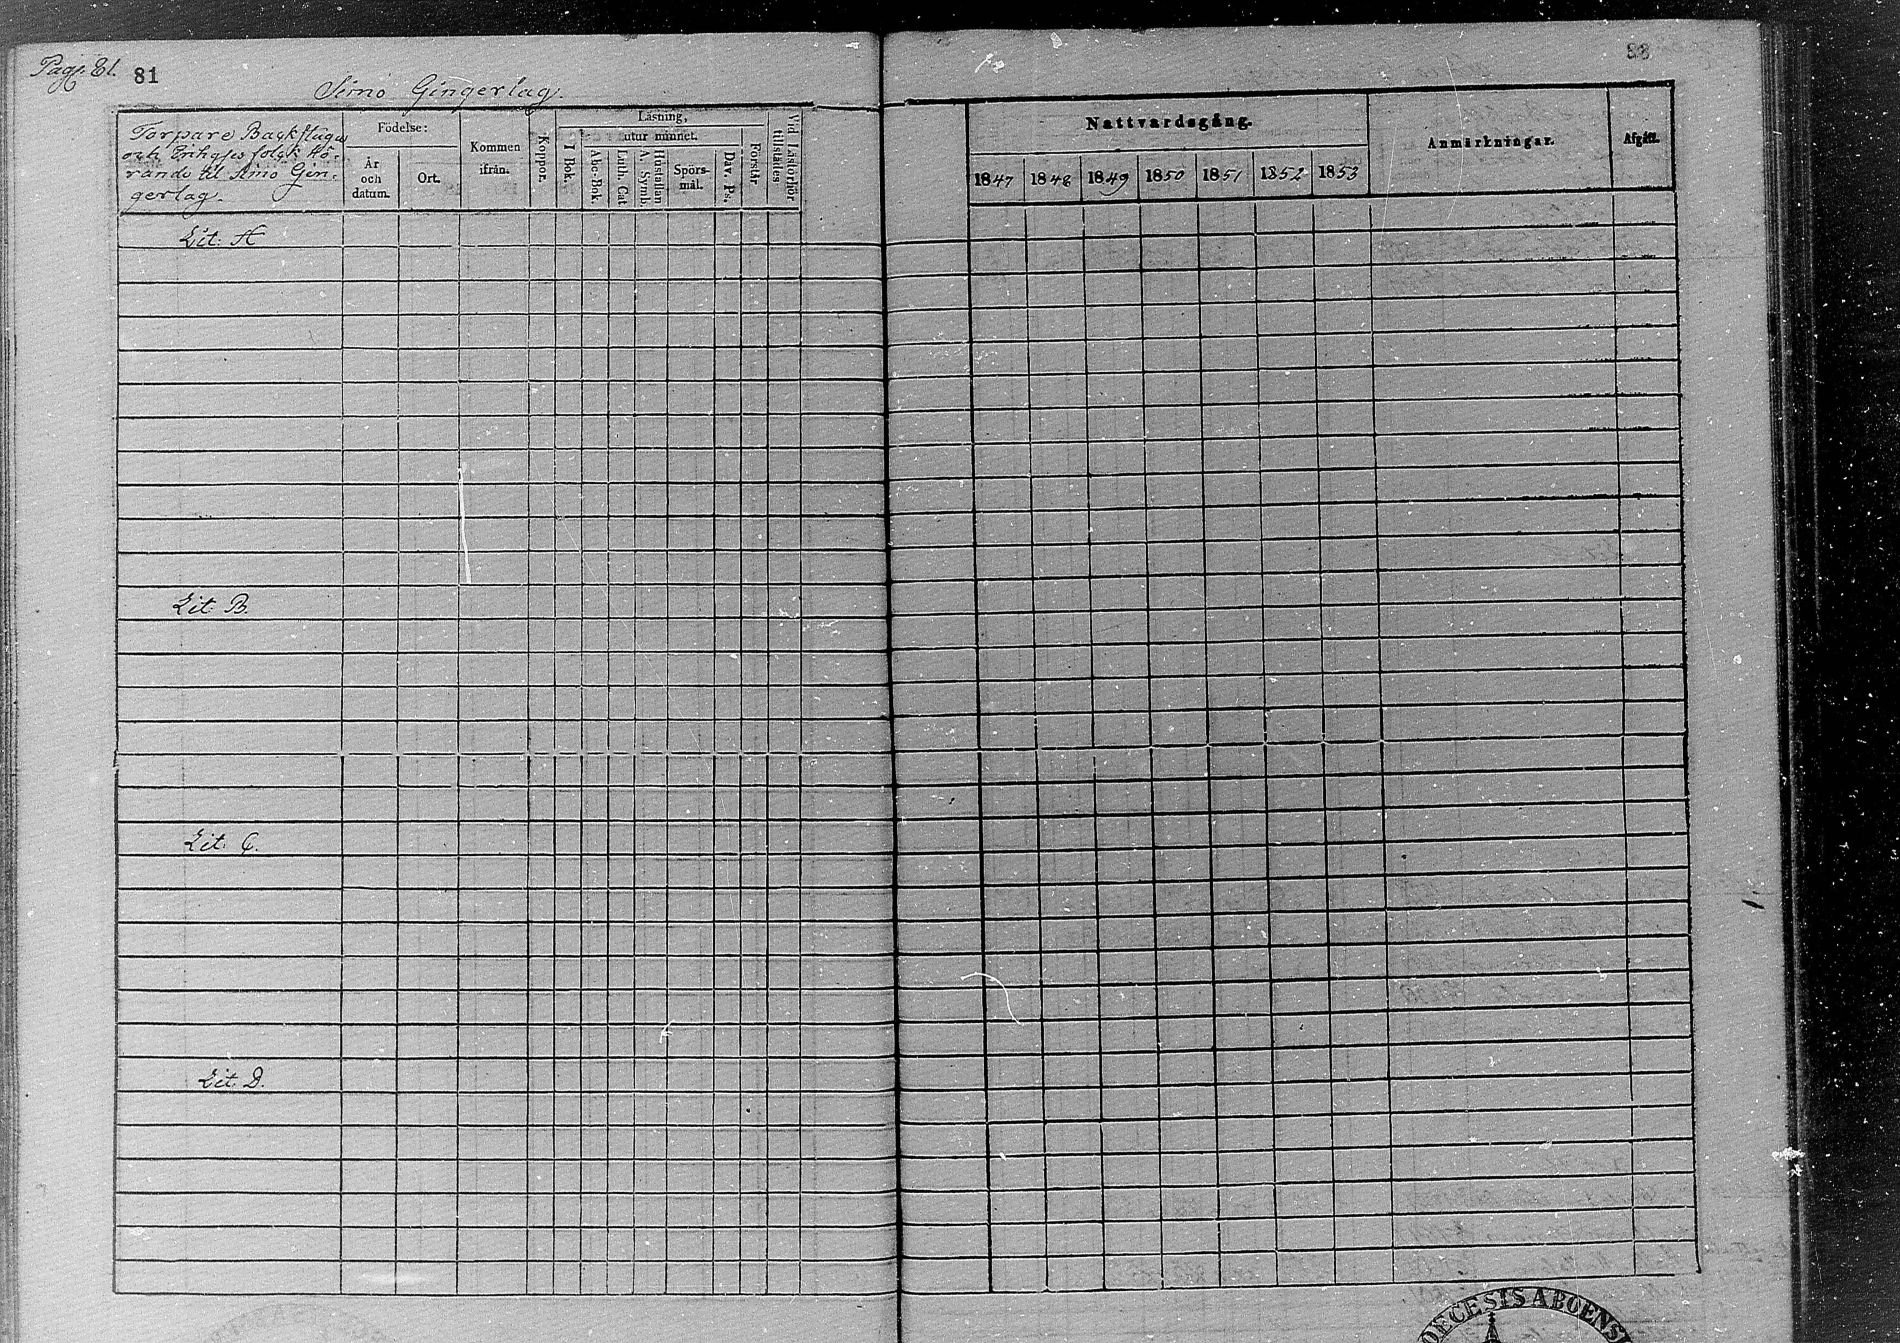 Pag. 81. 81
Simo Gingerlag.
Torpare Backstugu
och Inhyses folck hö-
rande til Simo Gin-
gerlag.
Födelse:
År
och
datum.
Ort.
Kommen
ifrån.
Koppor.
Läsning,
utur minnet.
I Bok.
Abc-Bok.
Luth. Cat
A. Symb.
Hustaflan
Spörs-
mål.
Dav. Ps.
Förstår
Vid Läsförhör
tillstädes
Lit. A
Lit. B.
Lit. C.
Lit. D.
Nattvardsgång.
1847 1848 1849 1850 1851 1852 1853
Anmärkningar.
Afgått.
DECESIS ABOENS